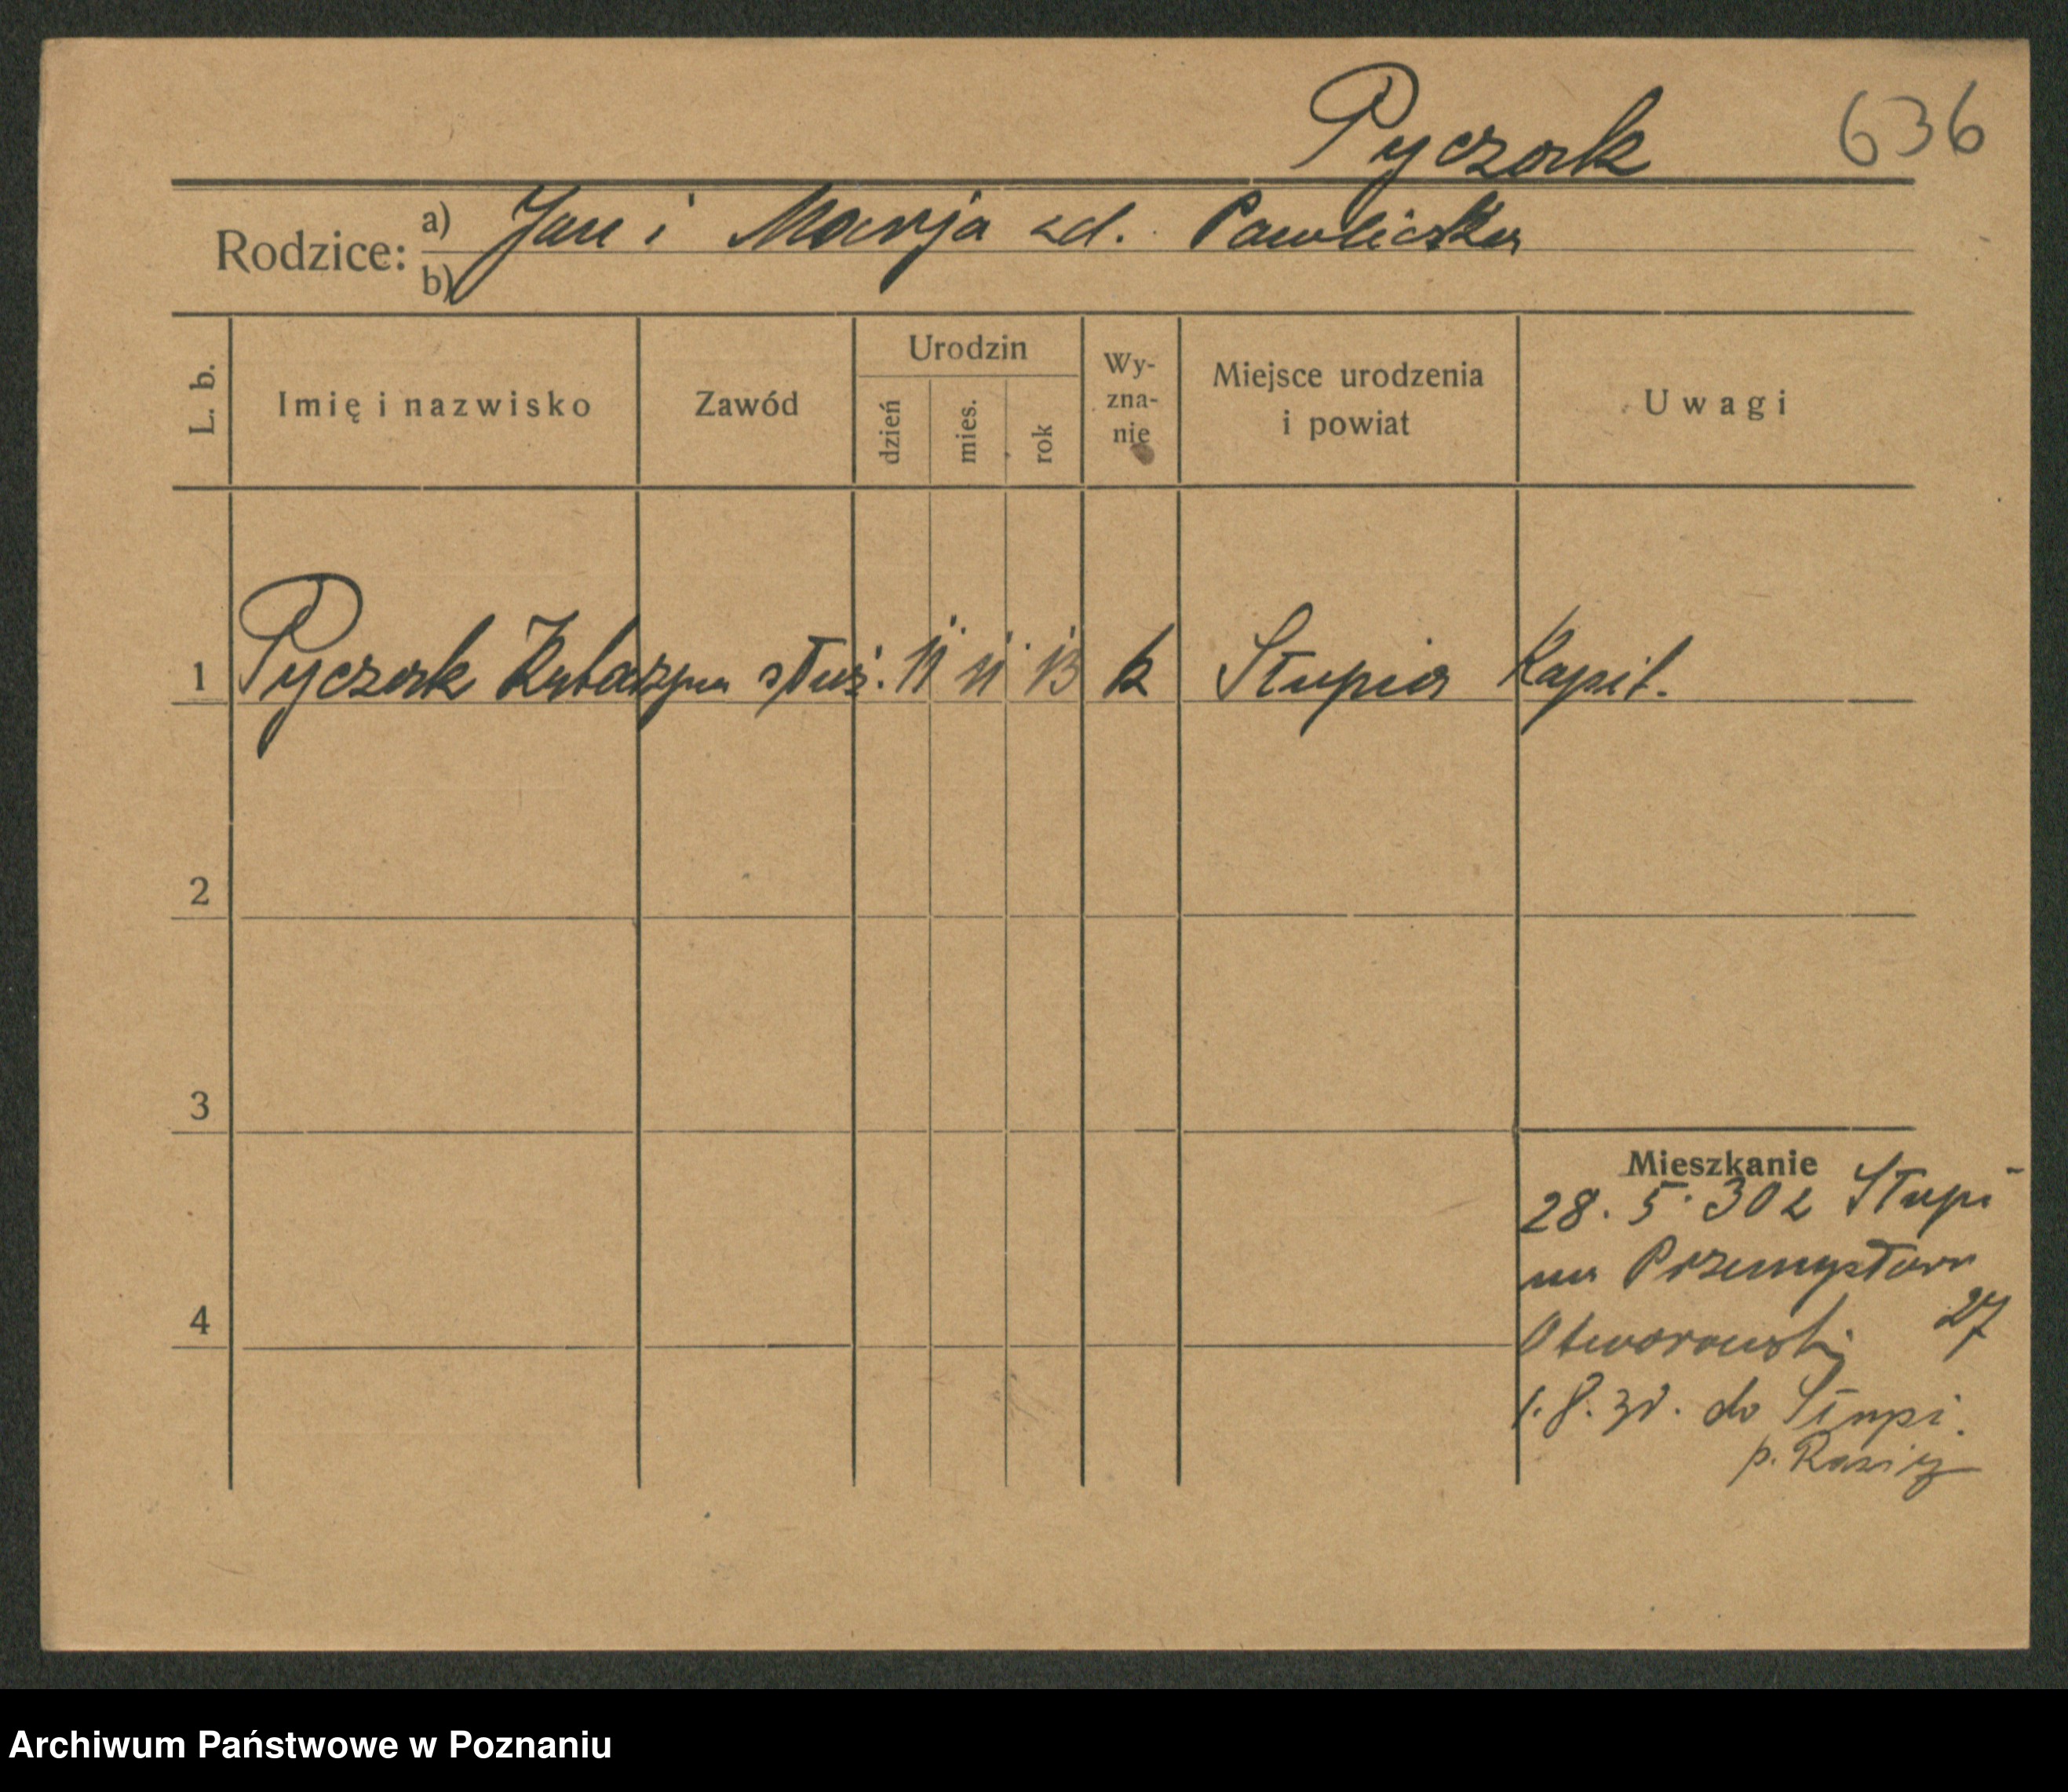 Pyczak 636
Rodzice: a) Jan i Marja zd. Pawlicka
b)
L. b. Imię i nazwisko Zawód Urodzin dzień mies. rok Wy-zna-nie Miejsce urodzenia i powiat Uwagi
1 Pyczak Katarzyna służ. 11 11 13 k Słupia Kapit.
2
3
4
Mieszkanie
28. 5. 30 z Słupi
na Przemysława
Otworowski 27
1. 8. 31. do Słupi.
p. Rawicz
Archiwum Państwowe w Poznaniu